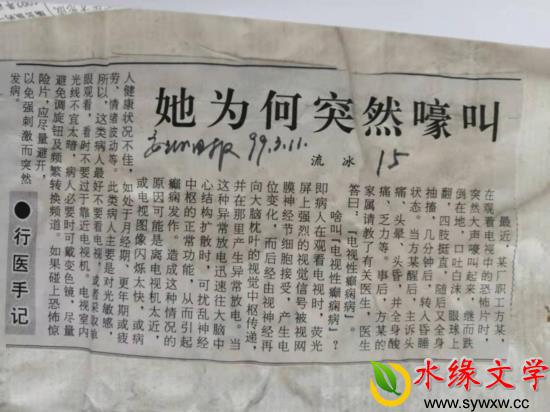 她为何突然嚎叫
99.3.11.
15
流 冰
最近，某厂职工方某，
在观看电视中的恐怖片时，
突然大声嚎叫起来，继而跌
倒在地，口吐白沫，眼球上
翻，四肢挺直，随后又全身
抽搐。几分钟后，转入昏睡
状态。当方某醒后，主诉头
痛、头晕、头昏，并全身酸
痛、乏力等。事后，方某的
家属请教了有关医生，医生
答曰：“电视性癫痫病”。
啥叫“电视性癫痫病”？
即病人在观看电视时，荧光
屏上强烈的视觉信号被视网
膜神经节细胞接受，产生电
位变化，而后经由视神经再
向大脑枕叶的视觉中枢传递，
并在那里产生异常放电。当
这种异常放电迅速往大脑中
心结构扩散时，可扰乱神经
中枢的正常功能，从而引起
癫痫发作。造成这种情况的
原因可能是离电视机太近，
或电视图像闪烁太快，或病
人健康状况不佳，如处于月经期、更年期或疲
劳、情绪波动等。此类病人主要是对光敏感，
所以，这类病人最好不要看电视，或者采取单
眼观看，看时不要过于靠近电视机。电视室内
光线不宜太暗，病人必要时可戴变色镜，尽量
避免调旋钮及频繁转换频道。如果碰上恐怖惊
险片，应尽量避开，
以免强刺激而突然
发病。
●行医手记
水缘文学
www.sywxw.cc